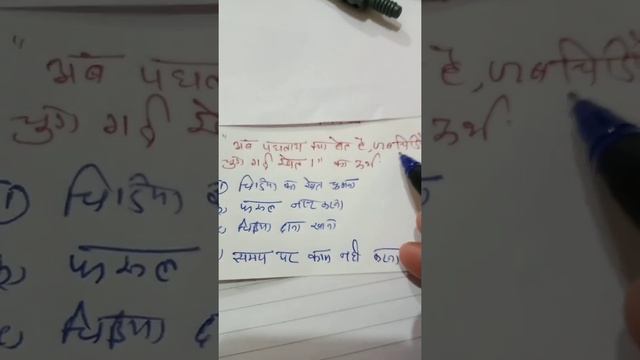 "अब पछताय क्या होत है, जब चिड़ि
चुग गई खेत।" का अर्थ
चिडिया का खेत
फसल नष्ट करना
चिड़िया दाना खाना
समय पर काम नहीं करना